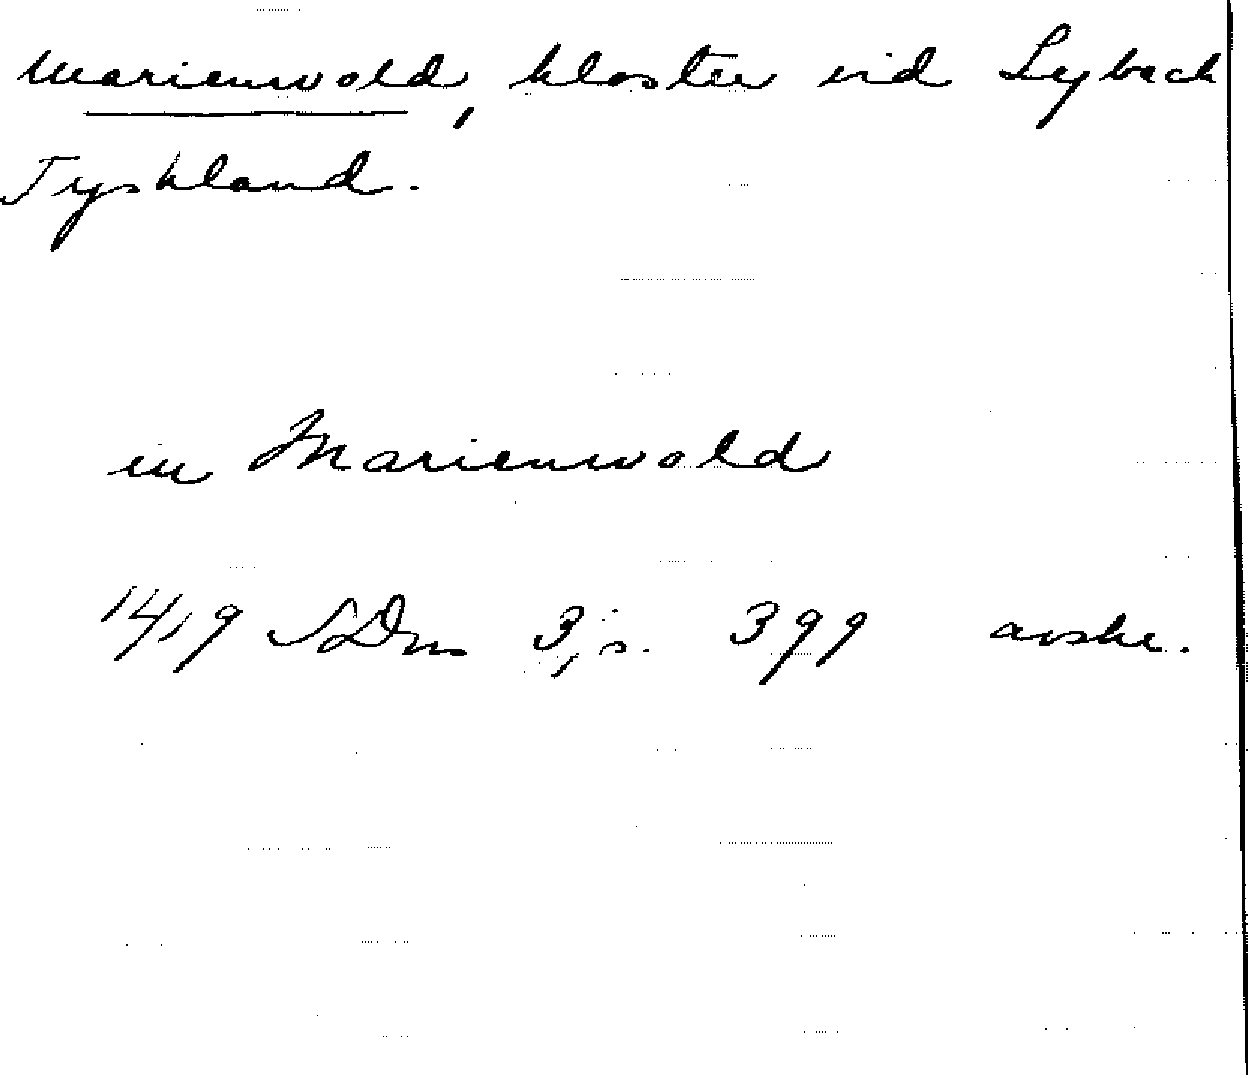 Marienwold, kloster vid Lybeck
Tyskland.
in Marienwold
1419 SDns 3, s. 399 avskr.